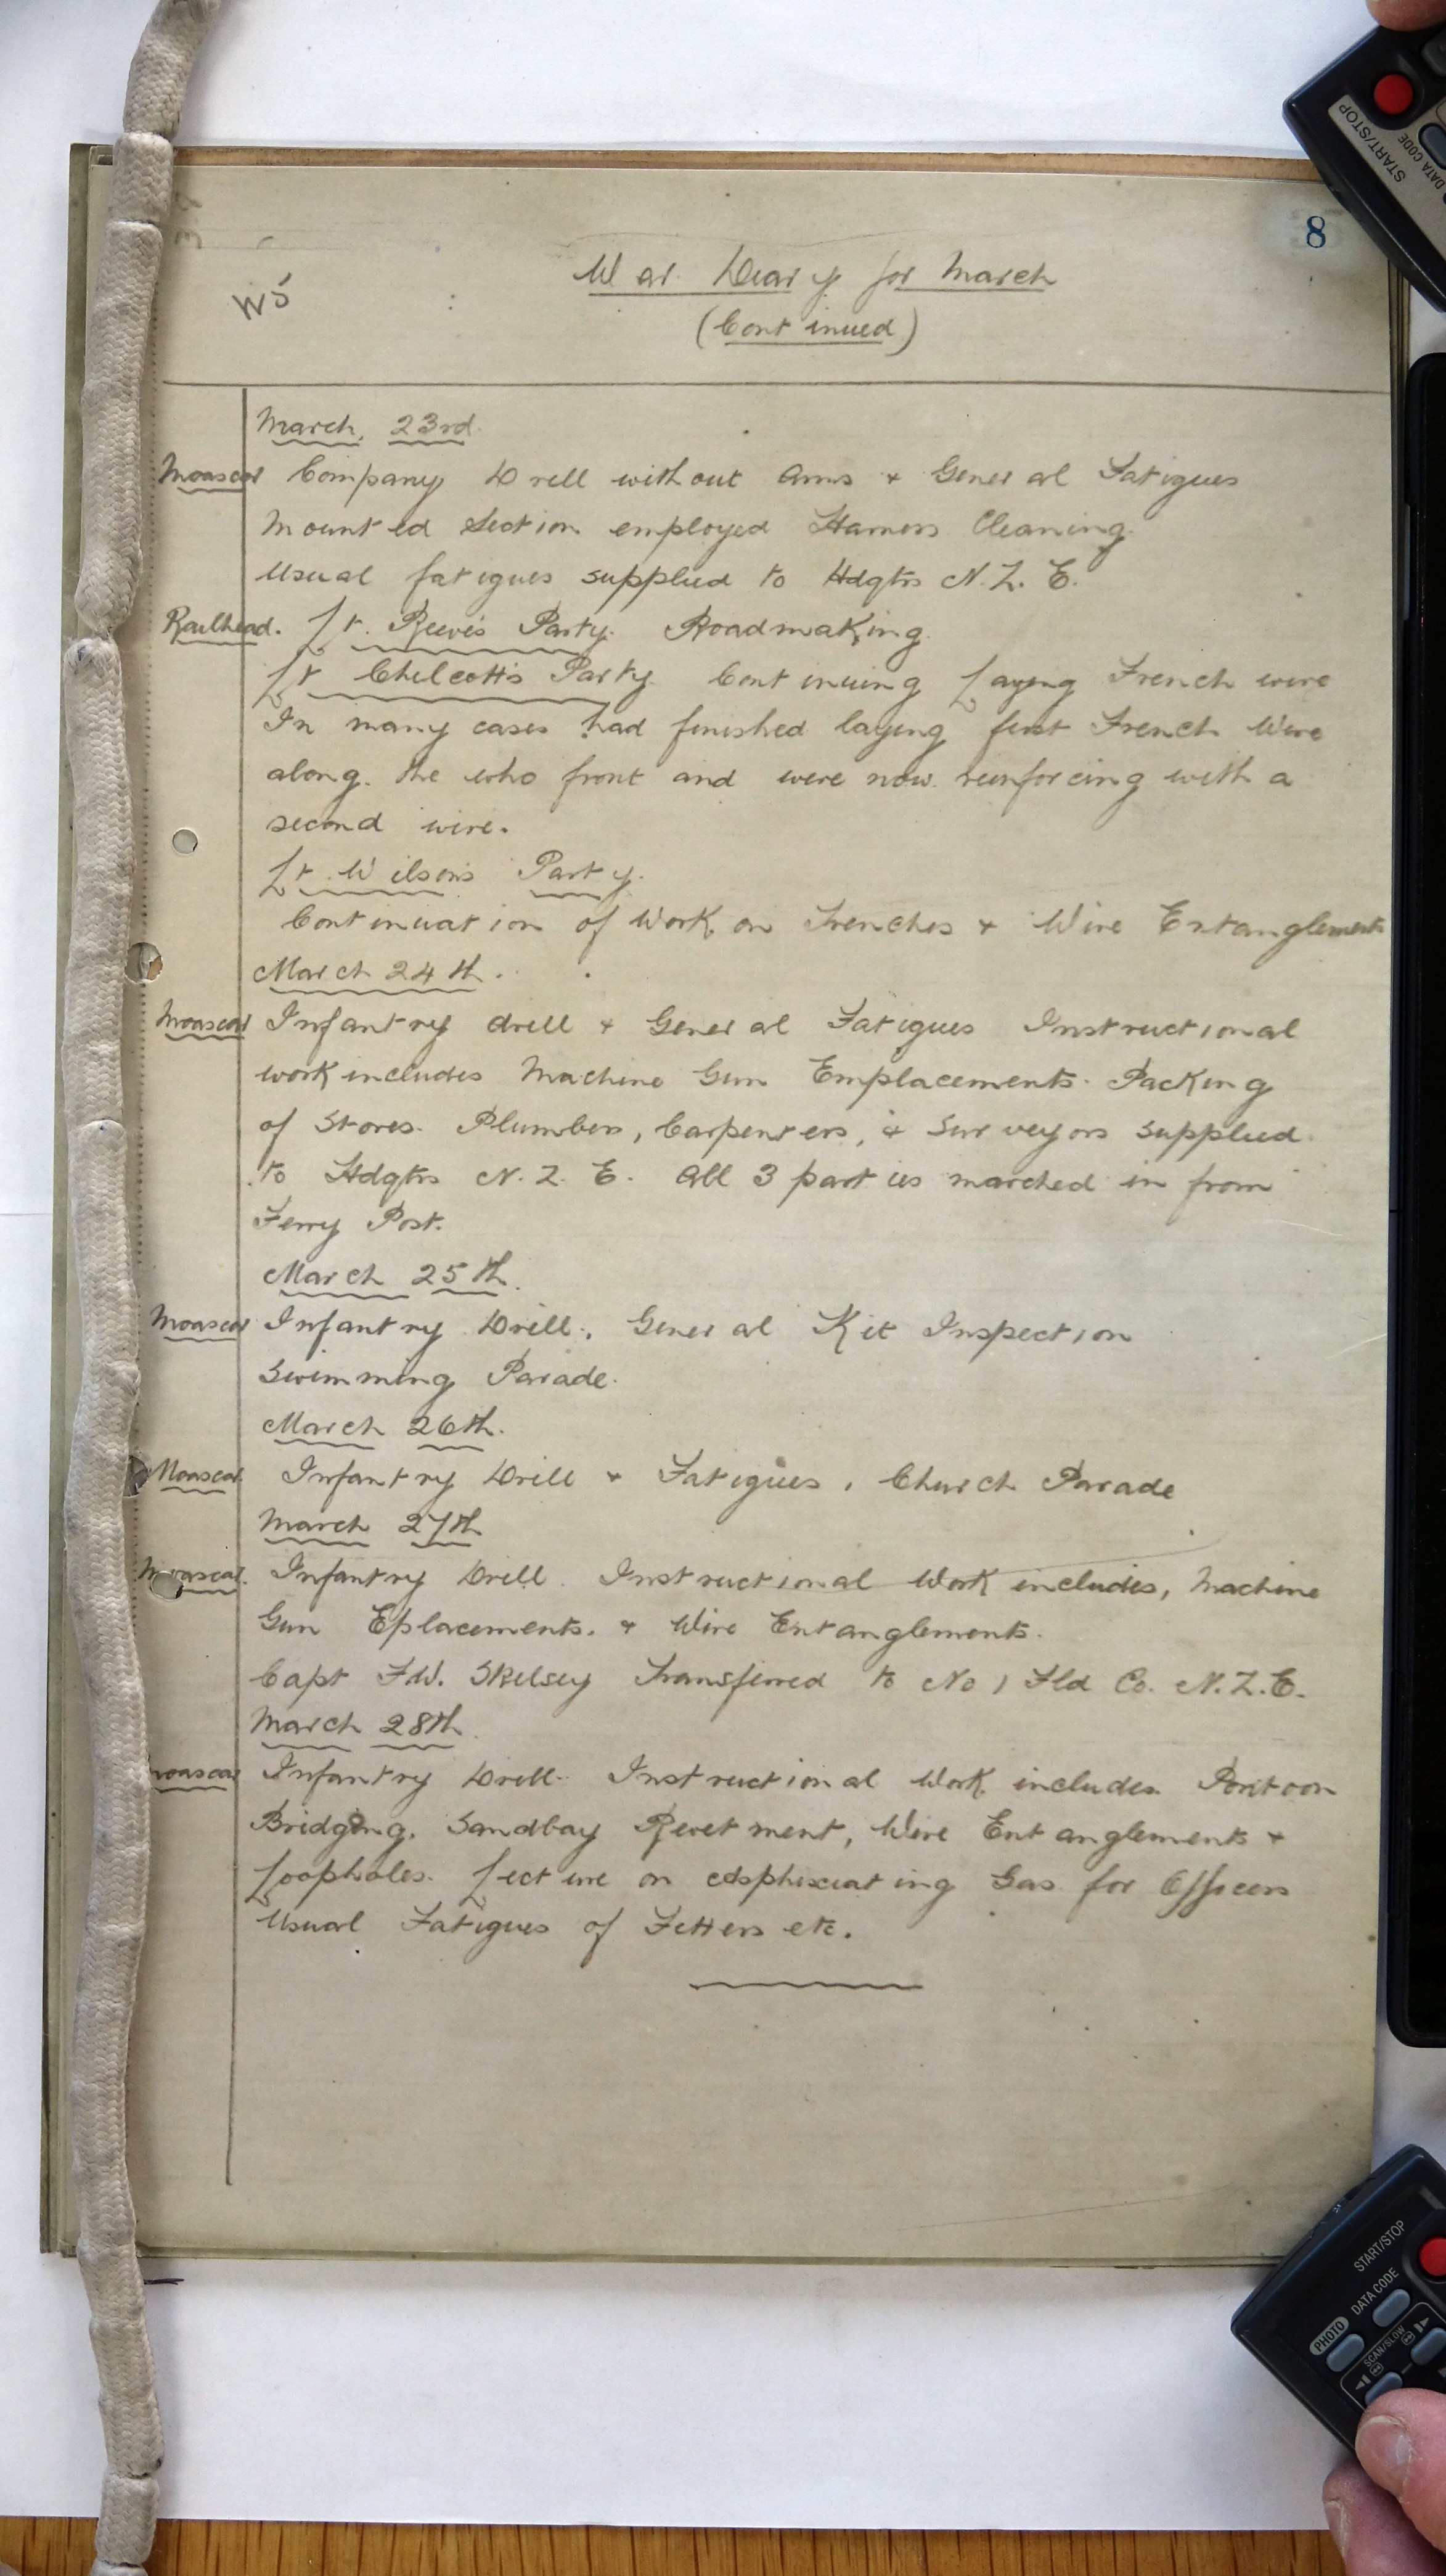 8
W5
War Diary for March
(Continued)
March, 23rd.
Moascar Company Drill without Arms & General Fatigues
Mounted Section employed Harness Cleaning.
Usual fatigues supplied to Hdqtrs N.Z.E.
Railhead. Lt. Reeve's Party. Roadmaking.
Lt Chilcott's Party. Continuing Laying French wire
In many cases had finished laying first French Wire
along the who front and were now reinforcing with a
second wire.
Lt. Wilson's Party.
Continuation of Work on Trenches & Wire Entanglements
March 24th.
Moascar Infantry drill & General Fatigues Instructional
work includes Machine Gun Emplacements. Packing
of Stores. Plumbers, Carpenters, & Surveyors supplied
to Hdqtrs N.Z.E. All 3 parties marched in from
Ferry Post.
March 25th.
Moascar Infantry Drill, General Kit Inspection
Swimming Parade.
March 26th.
Moascar Infantry Drill & Fatigues, Church Parade
March 27th
Moascar. Infantry Drill. Instructional Work includes, Machine
Gun Eplacements. & Wire Entanglements.
Capt F.W. Skelsey Transferred to No 1 Fld Co. N.Z.E.
March 28th.
Moascar Infantry Drill. Instructional Work includes Pontoon
Bridging. Sandbag Revetment, Wire Entanglements &
Loopholes. Lecture on Asphixiating Gas for Officers
Usual Fatigues of Fitters etc.
START/STOP
DATA CODE
START/STOP
DATA CODE
PHOTO
SCAN/SLOW